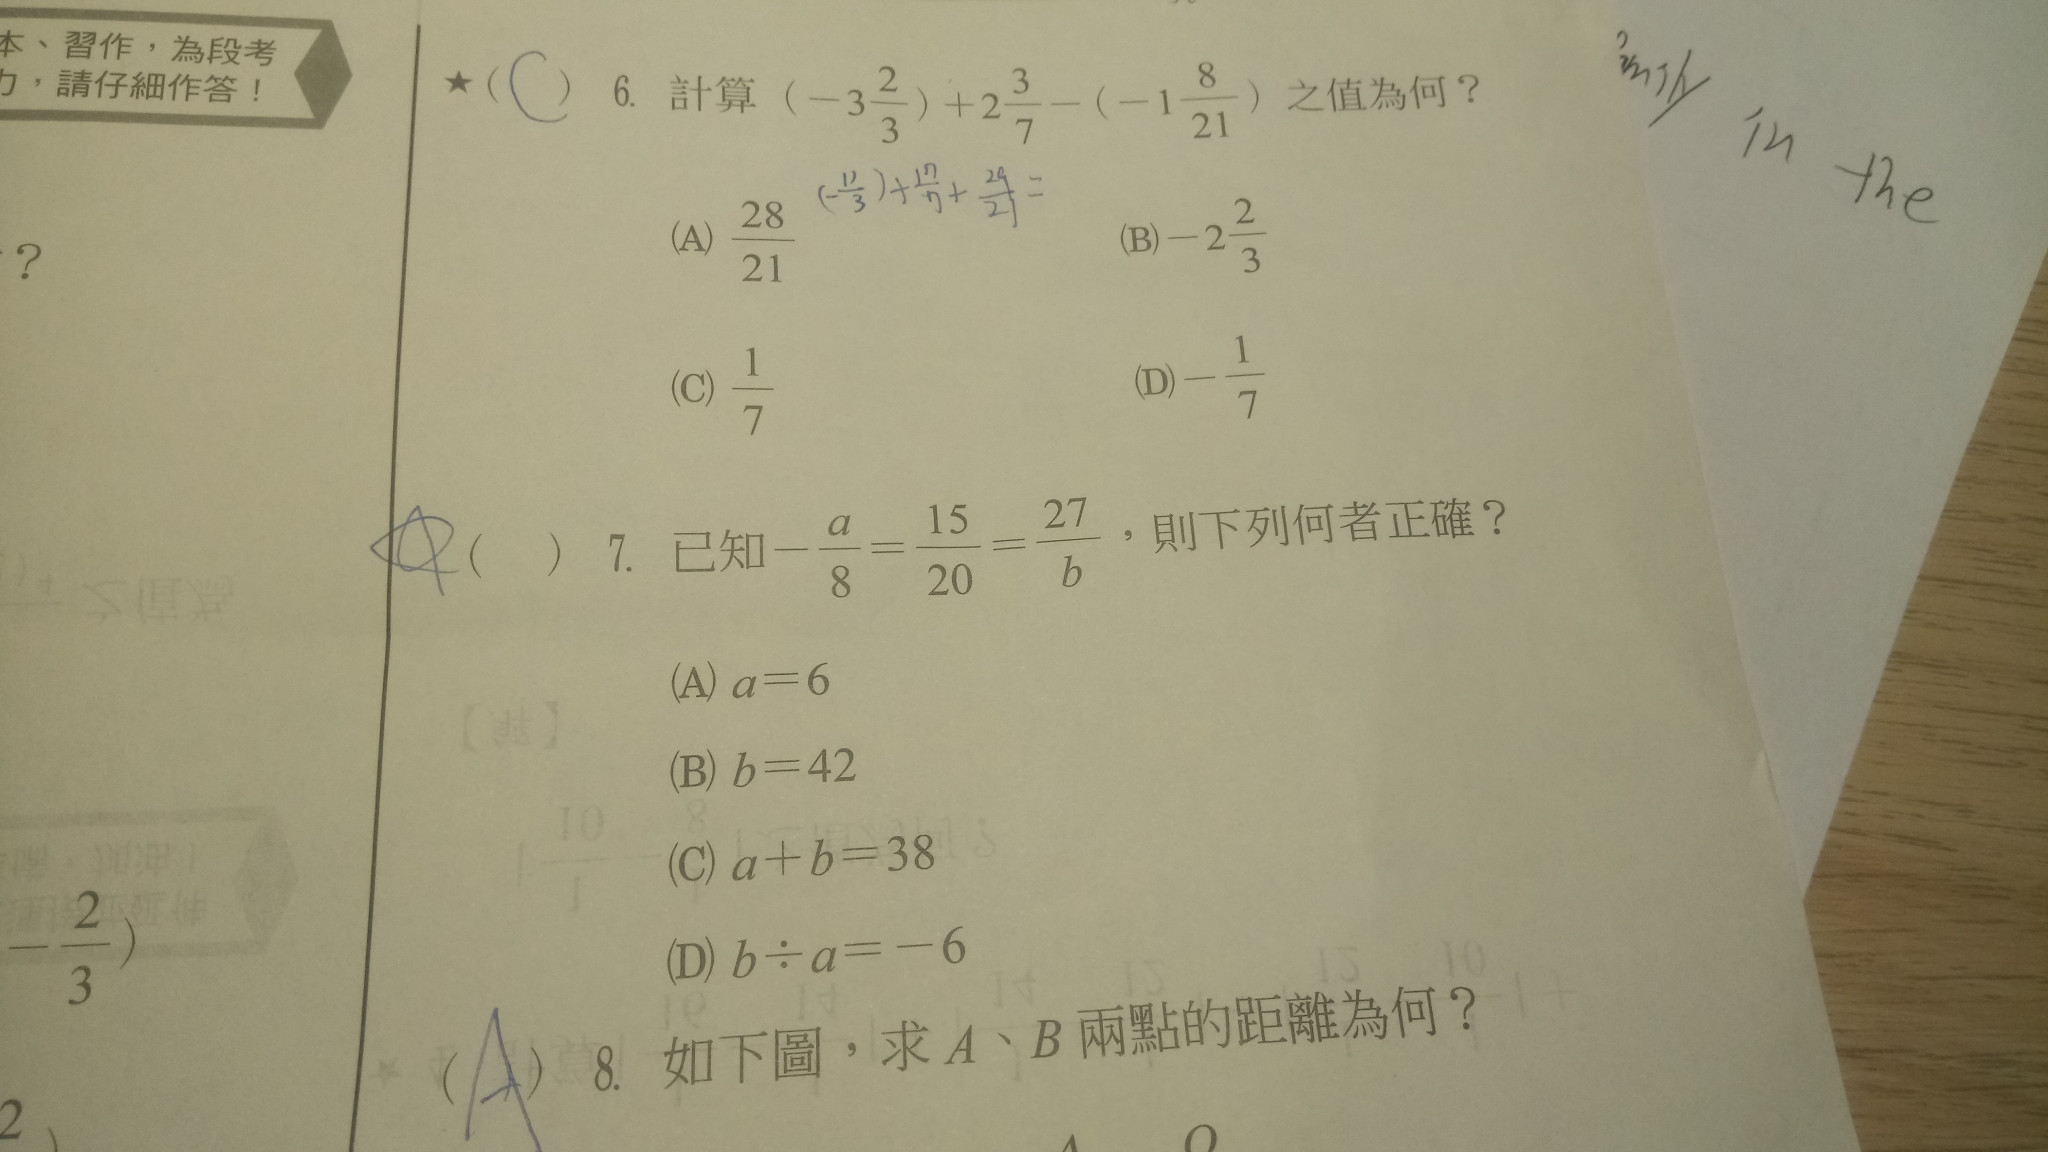 本、習作，為段考
力，請仔細作答！
？
−2/3）
2
★（C）6. 計算（−3 2/3）＋2 3/7−（−1 8/21）之值為何？
(−11/3)+17/7+29/21=
(A) 28/21 (B)−2 2/3
(C) 1/7 (D)−1/7
（ ）7. 已知−a/8＝15/20＝27/b，則下列何者正確？
(A) a＝6
(B) b＝42
(C) a＋b＝38
(D) b÷a＝−6
（A）8. 如下圖，求 A、B 兩點的距離為何？
A O
in the